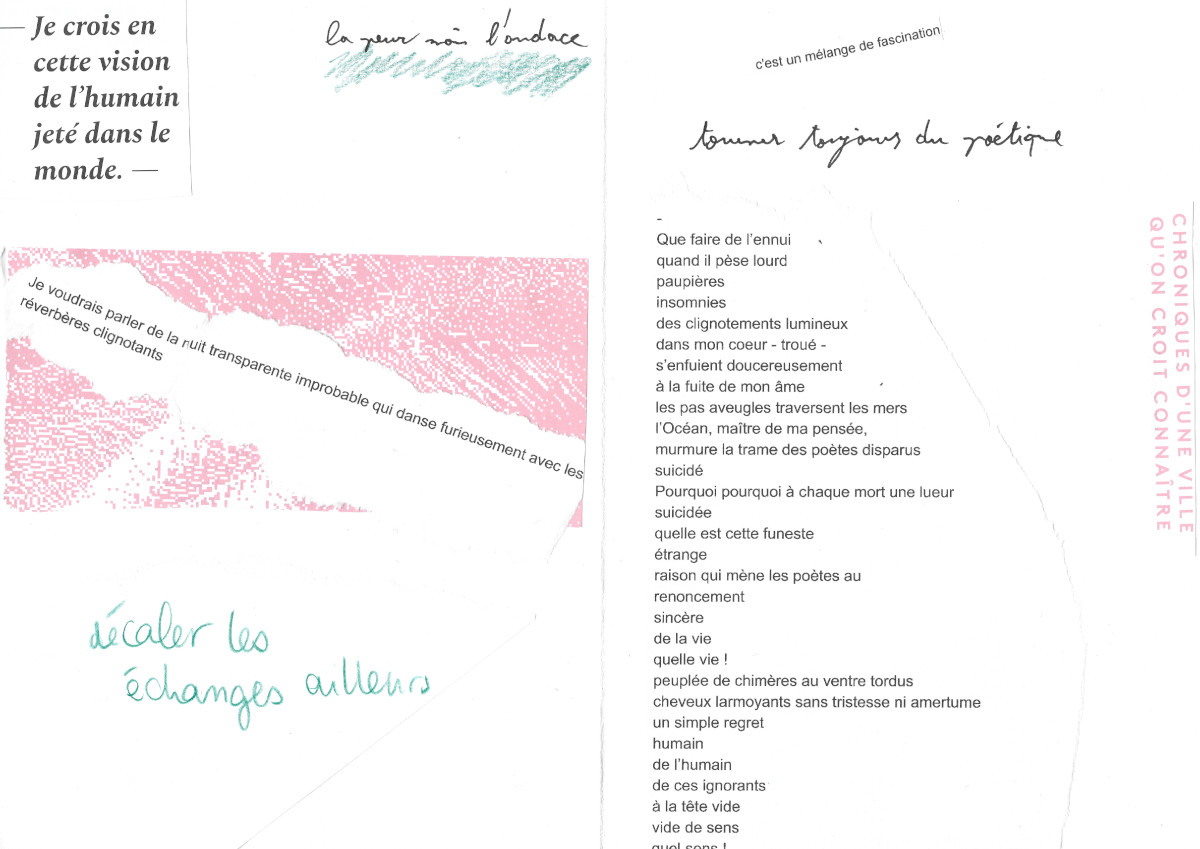 — Je crois en
cette vision
de l’humain
jeté dans le
monde. —
la peur l'audace
Je voudrais parler de la nuit transparente improbable qui danse furieusement avec les
réverbères clignotants
décaler les
échanges ailleurs
c'est un mélange de fascination
toujours du poétique
-
Que faire de l’ennui
quand il pèse lourd
paupières
insomnies
des clignotements lumineux
dans mon coeur - troué -
s’enfuient doucereusement
à la fuite de mon âme
les pas aveugles traversent les mers
l’Océan, maître de ma pensée,
murmure la trame des poètes disparus
suicidé
Pourquoi pourquoi à chaque mort une lueur
suicidée
quelle est cette funeste
étrange
raison qui mène les poètes au
renoncement
sincère
de la vie
quelle vie !
peuplée de chimères au ventre tordus
cheveux larmoyants sans tristesse ni amertume
un simple regret
humain
de l’humain
de ces ignorants
à la tête vide
vide de sens
quel sens !
CHRONIQUES D'UNE VILLE
QU'ON CROIT CONNAÎTRE